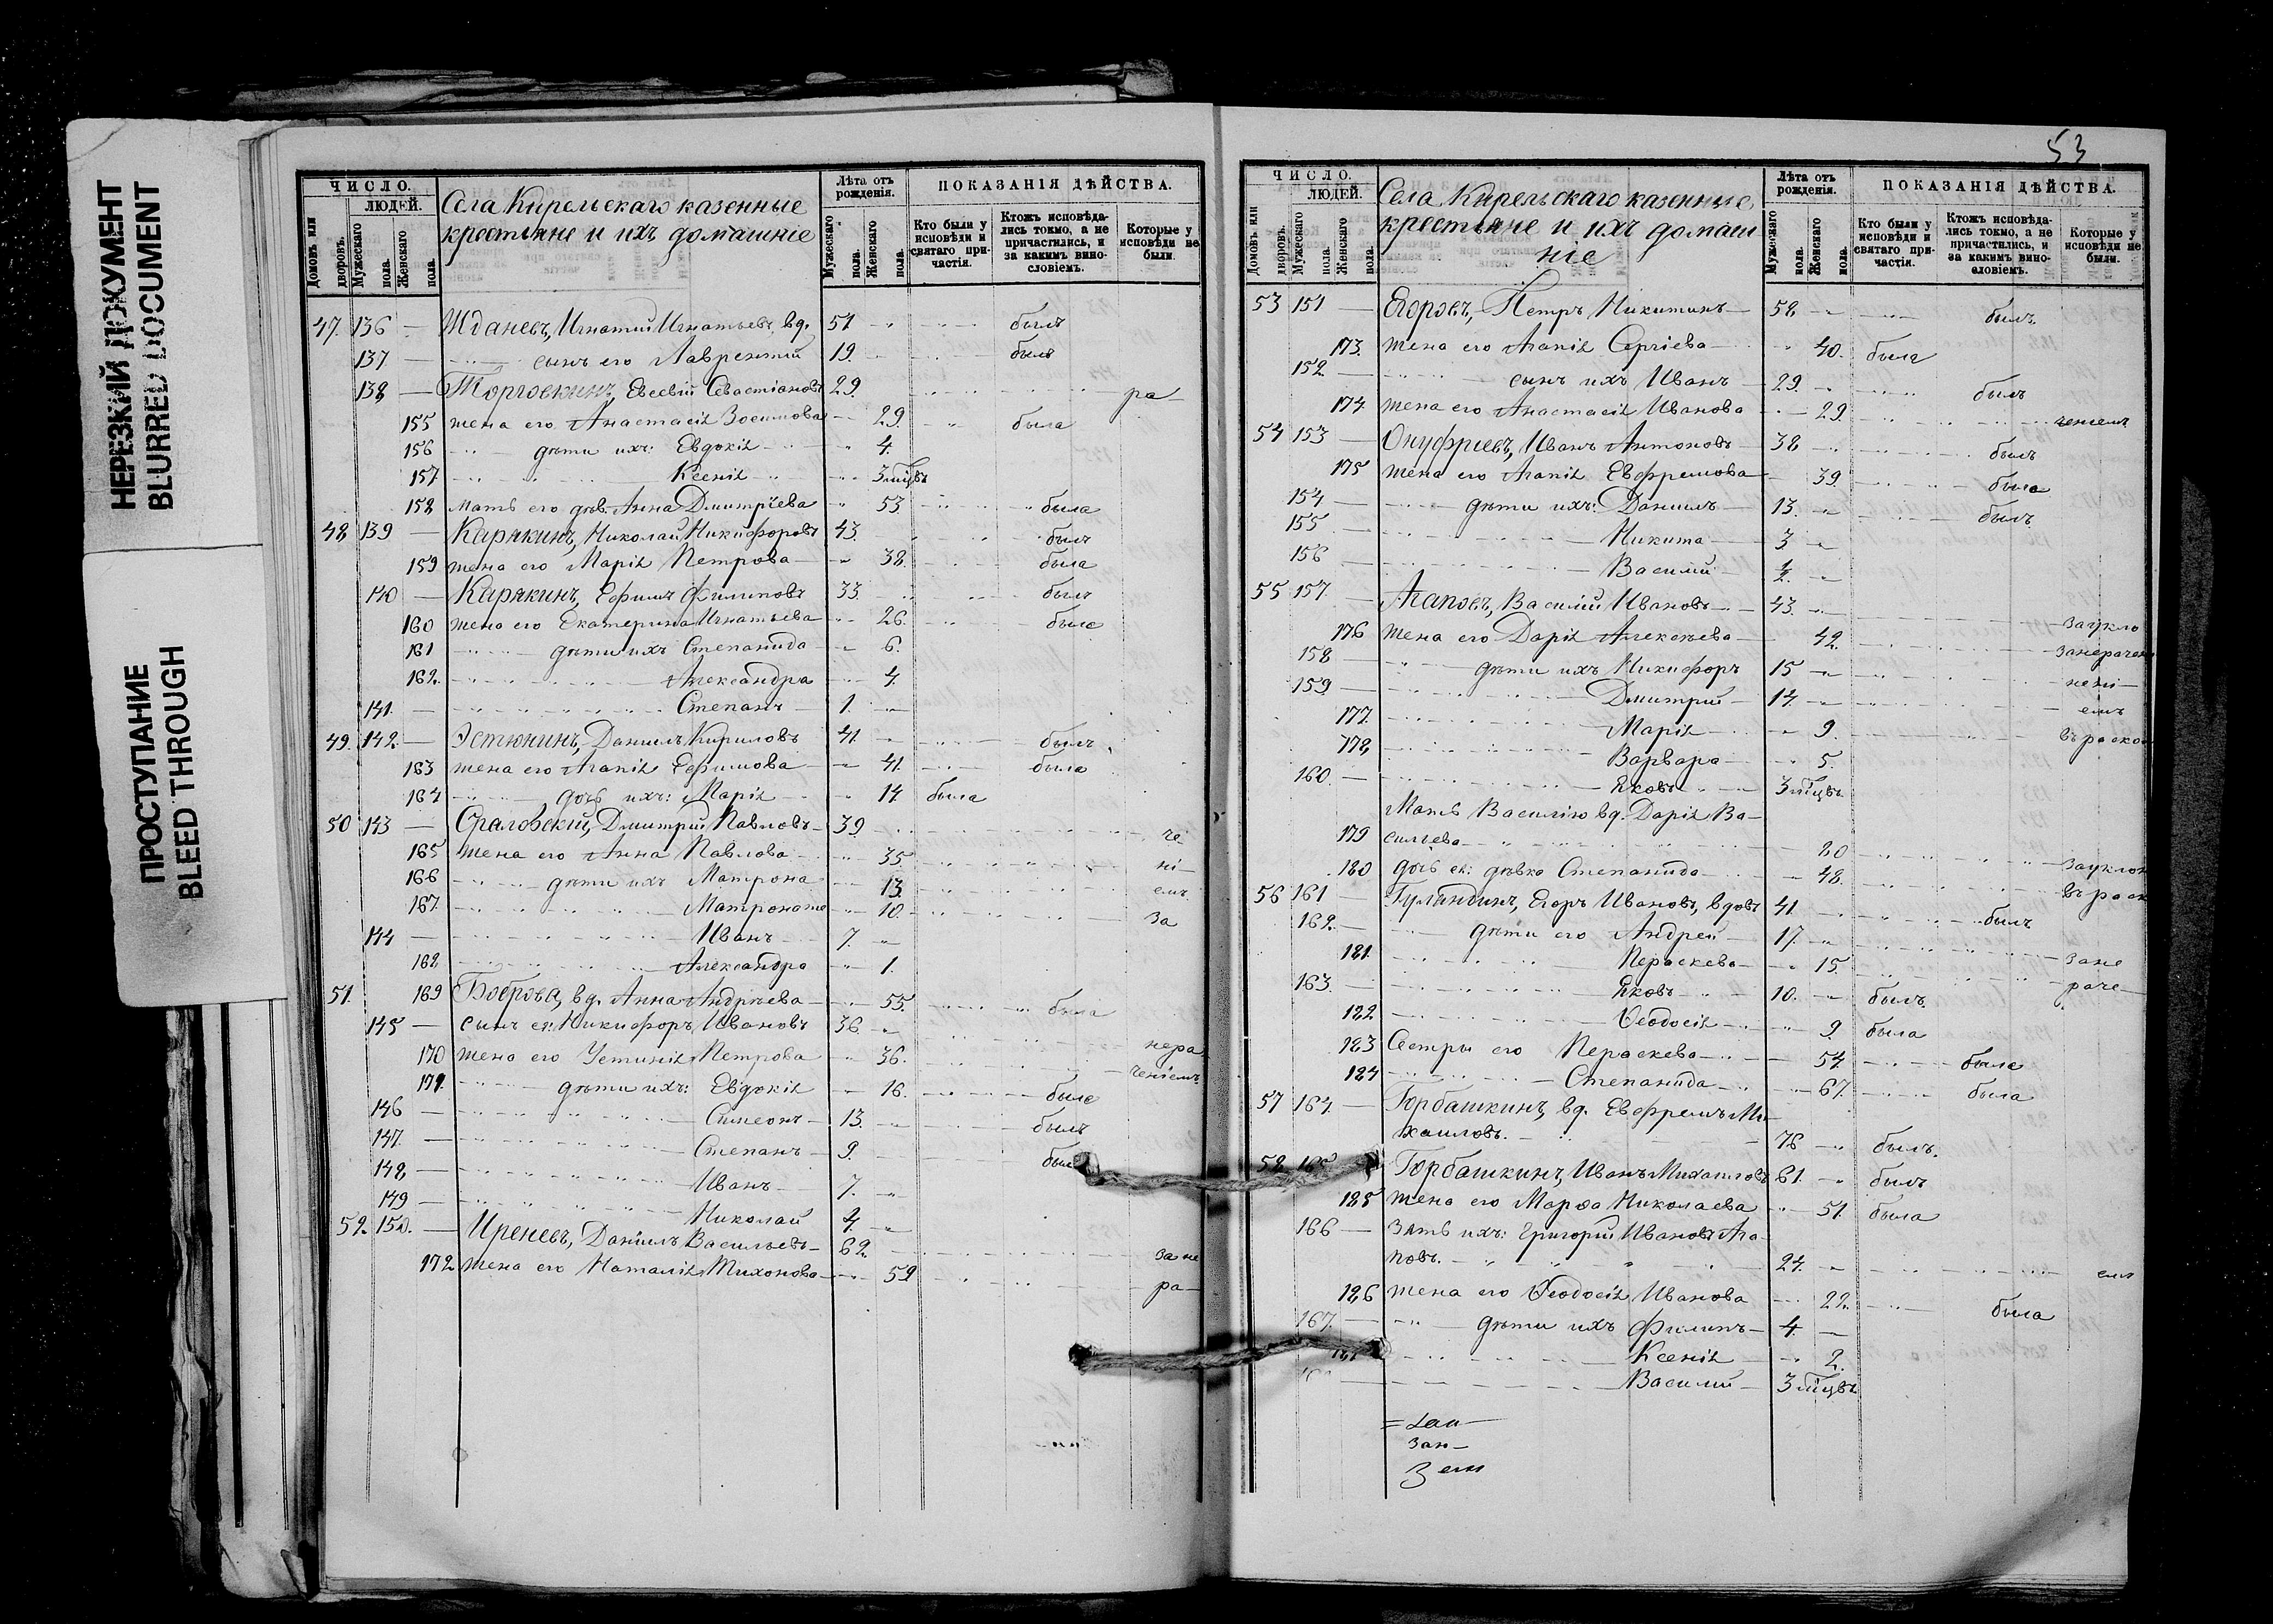 НЕРЕЗКИЙ ДОКУМЕНТ
BLURRED DOCUMENT
ПРОСТУПАНИЕ
BLEED THROUGH
ЧИСЛО.
ЛЮДЕЙ.
Домовъ или дворовъ.
Мужескаго пола.
Женскаго пола.
Села Кирельскаго казенные
крестьяне и ихъ домашніе
Лѣта отъ рожденія.
Мужескаго пола.
Женскаго пола.
ПОКАЗАНІЯ ДѢЙСТВА.
Кто были у исповѣди и святаго при-частія.
Ктожъ исповѣда-лись токмо, а не причастились, и за какимъ вино-словіемъ.
Которые у исповѣди не были.
47. 136 Ждановъ, Игнатій Игнатьевъ вд. 51 былъ
137 сынъ его Лаврентій 19. былъ
138 Евсевій Севастіановъ 29. ра
155 жена его Анастасія Зосимова 29. была
156 дѣти ихъ: Евдокія 4.
157 Ксенія 3 мѣцвъ
158 мать его Анна Дмитріева 53 была
48 139 Карякинъ, Николай Никифоровъ 43. былъ
159 жена его Марія Петрова 38. была
140 Карякинъ, Ефимъ Филиповъ 33. былъ
160 жена его Екатерина Игнатьева 26. была
161 дѣти ихъ Степанида 6.
162. Александра 4.
141. Степанъ 1.
49. 142 Эстюнинъ, Даниилъ Кириловъ 41. былъ
163 жена его Агапія Ефимова 41. была
164 дочь ихъ: Марія 14 была
50 143 Дмитрій Павловъ 39 че
165 жена его Анна Павлова 35. ні
166 дѣти ихъ Матрона 13 емъ
167. 10. за
144 Иванъ 7.
168 Александра 1.
51. 169 Боброва, вд. Анна Андреева 55. была
145 сынъ ея: Никифоръ Ивановъ 36.
170 жена его Устинія Петрова 36. нера
171. дѣти ихъ: Евдокія 16. была ченіемъ
146 Симеонъ 13. былъ
147. Степанъ 9. был
148 Иванъ 7.
149 Николай 4.
52. 150. Иреневъ, Даніилъ Васильевъ 62. зане
172 жена его Наталія Тихонова 59 ра
53
ЧИСЛО.
ЛЮДЕЙ.
Домовъ или дворовъ.
Мужескаго пола.
Женскаго пола.
Села Кирельскаго казенные
крестьяне и ихъ домаш
ніе
Лѣта отъ рожденія.
Мужескаго пола.
Женскаго пола.
ПОКАЗАНІЯ ДѢЙСТВА.
Кто были у исповѣди и святаго при-частія.
Ктожъ исповѣда-лись токмо, а не причастились, и за какимъ вино-словіемъ.
Которые у исповѣди не были.
53 151 Егоровъ, Петръ Никитинъ 58 былъ.
173. жена его Агапія Сергіева 40. была
152. сынъ ихъ Иванъ 29. былъ
174 жена его Анастасія Иванова 29. ченіемъ
54 153 Онуфриевъ, Иванъ Антоновъ 38 былъ
175 жена его Агапія Евфремова 39. была
154 дѣти ихъ: Даніилъ 13. былъ
155 Никита 3
156 Василій
55 157. Агаповъ, Василій Ивановъ 43. заукло
176 жена его Дарія Алексѣева 42. занерачен
158 дѣти ихъ Никифоръ 15
159 Дмитрій 14. емъ
177. Марія 9. въ раско
178 Варвара 5.
160. Яковъ 3 мѣцвъ
Мать Василію вд. Дарія Ва-
179 сильева 80 зауклон
180 дочь ея: дѣвка Степанида 48. въ раск
56 161 Егоръ Ивановъ, вдовъ 41. былъ
162. дѣти его Андрей 17. зане
181. Параскева 15. раче
163. Яковъ 10. былъ.
182. Ѳеодосія 9. была
183 Сестры его Параскева 54. была
184 Степанида 67. была
57 164. Горбашкинъ, вд. Евфремъ Ми-
хаиловъ. 76 былъ.
58 165 Горбашкинъ, Иванъ Михаиловъ 61. былъ
185 жена его Марѳа Николаева 51. была
166 зять ихъ: Григорій Ивановъ Ага-
повъ. 24. емъ
186 жена его Ѳеодосія Иванова 22. была
167. дѣти ихъ Филипъ 4.
187 Ксенія 2.
Василій 3 мѣцвъ
зан